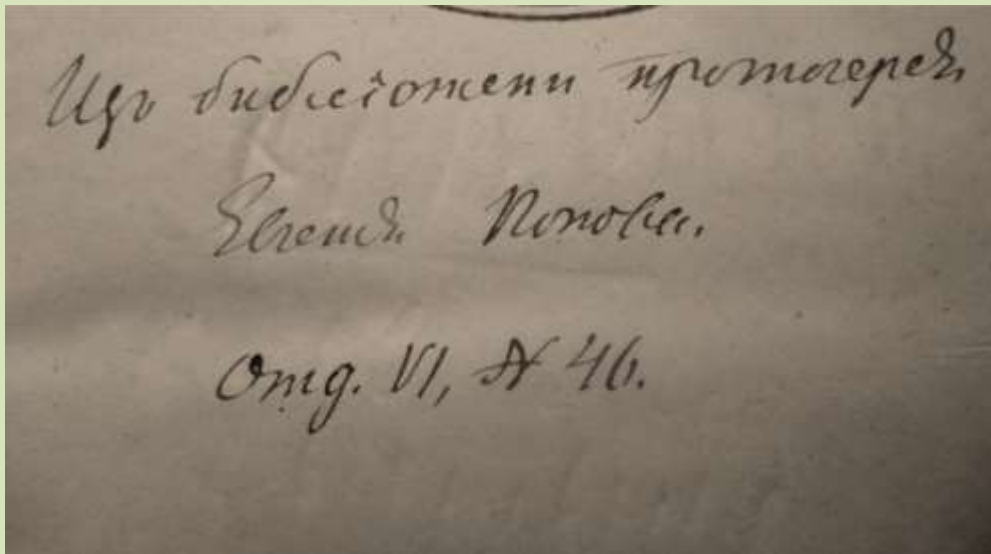 Изъ библіотеки протоіерея
Евгенія Попова.
Отд. VI, № 46.